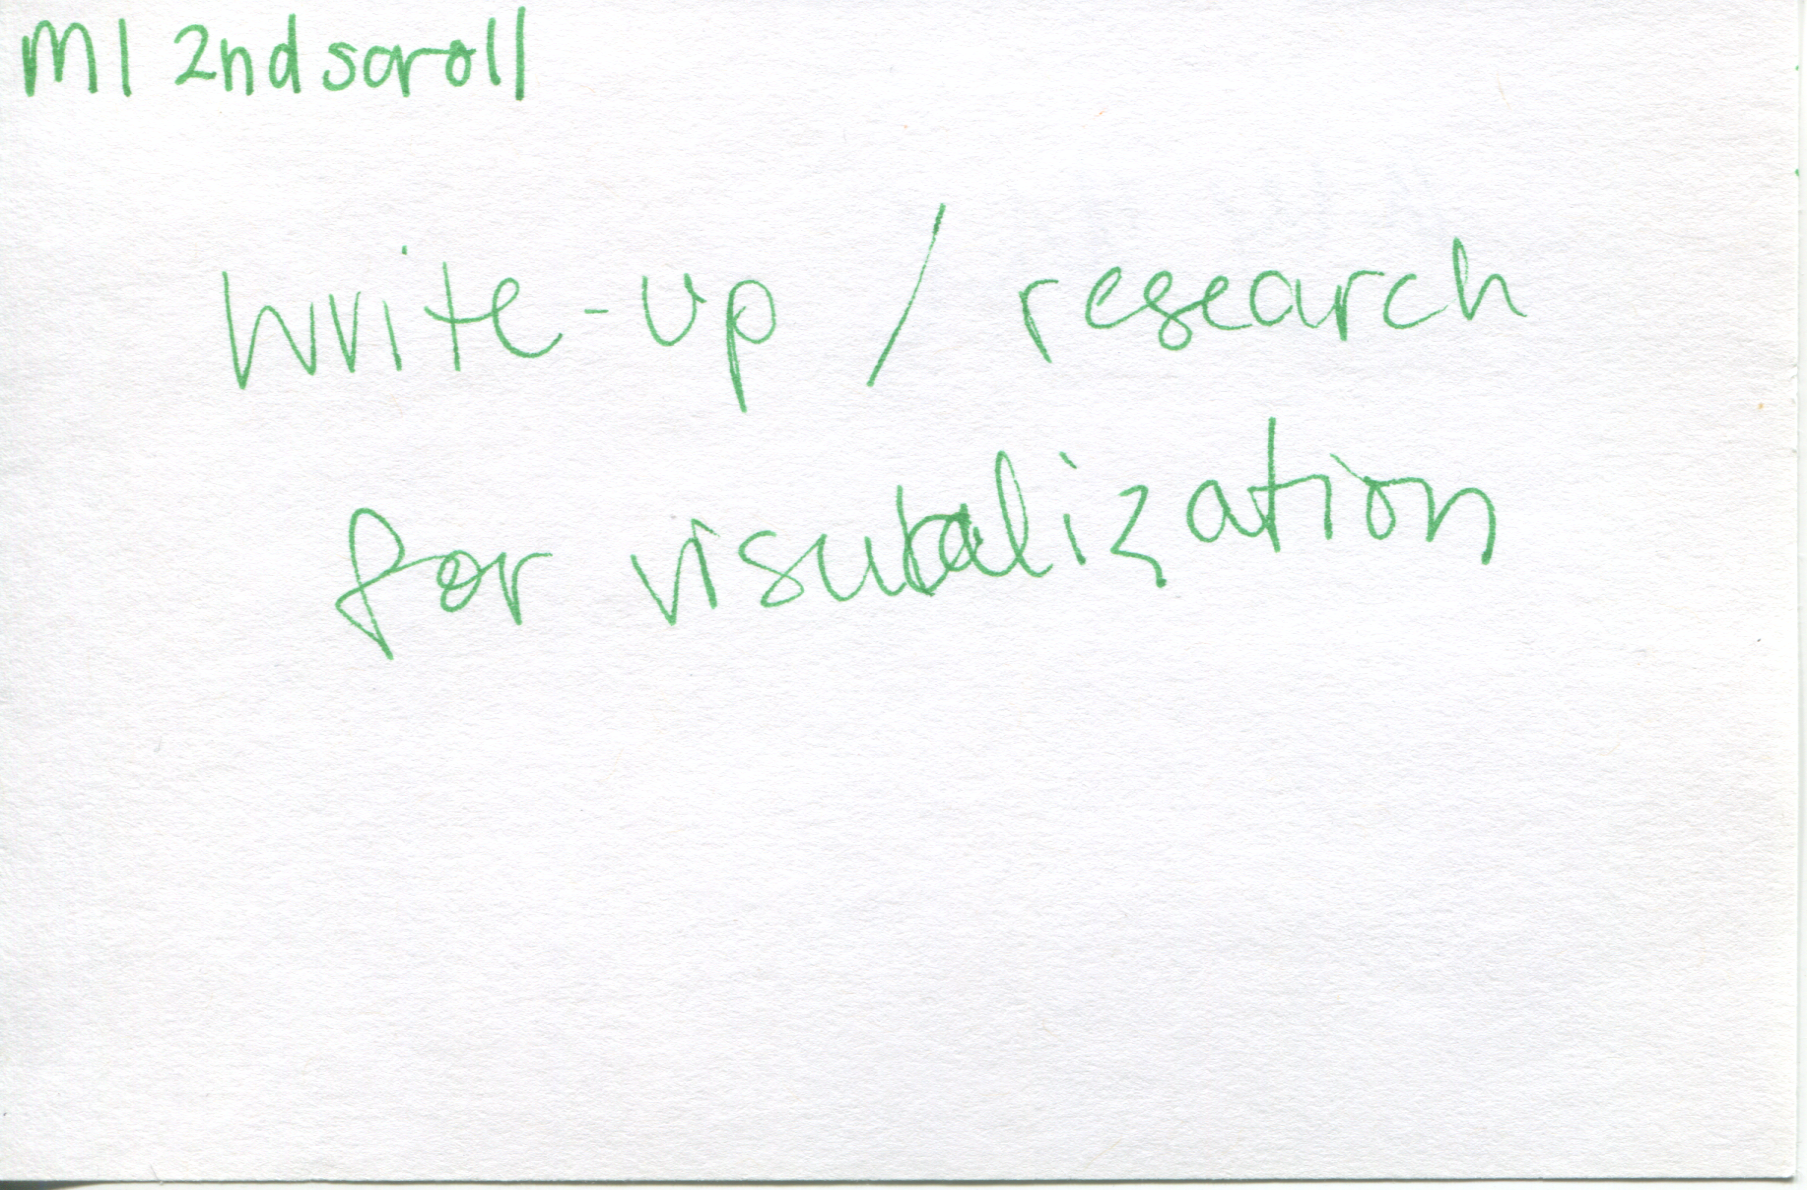 M1 2nd scroll
write-up / research
for visualization